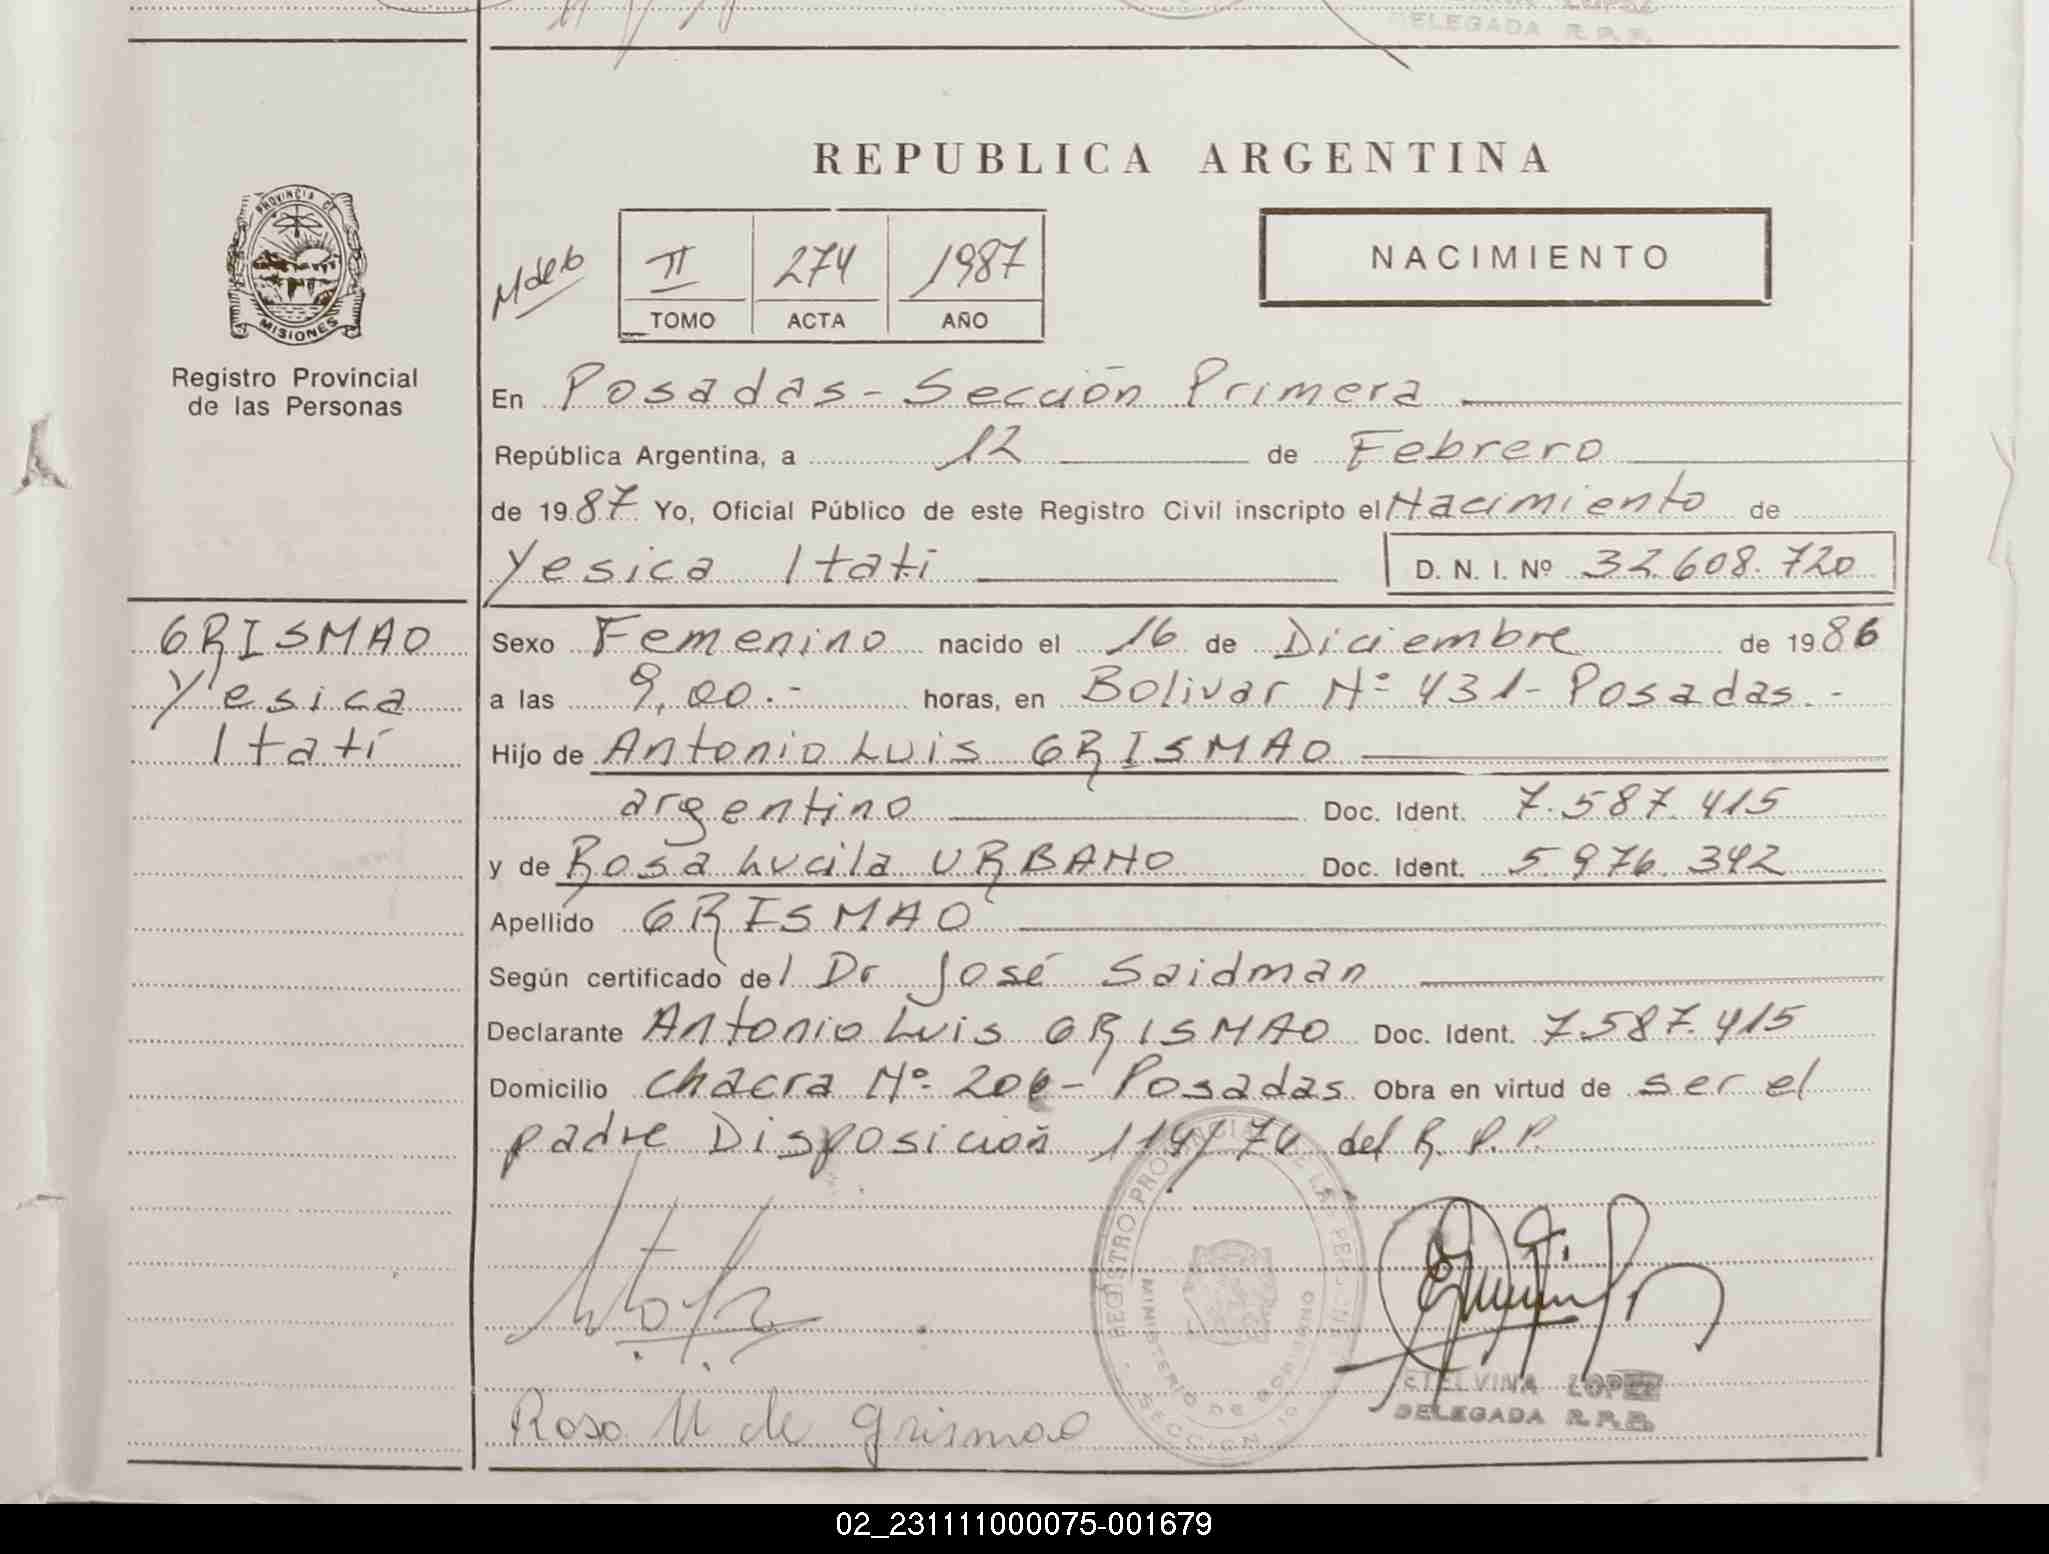 LOPEZ
DELEGADA R.P.P.
REPUBLICA ARGENTINA
PROVINCIA DE
MISIONES
Registro Provincial
de las Personas
II 274 1987
TOMO ACTA AÑO
NACIMIENTO
En Posadas - Sección Primera
República Argentina, a 12 de Febrero
de 1987 Yo, Oficial Público de este Registro Civil inscripto el Nacimiento de
Yesica Itatí D. N. I. Nº 32.608.720
GRISMAO
Yesica
Itatí
Sexo Femenino nacido el 16 de Diciembre de 1986
a las 9,00.- horas, en Bolivar Nº 431 - Posadas.-
Hijo de Antonio Luis GRISMAO
argentino Doc. Ident. 7.587.415
y de Rosa Lucila URBANO Doc. Ident. 5.976.342
Apellido GRISMAO
Según certificado del Dr José Saidman
Declarante Antonio Luis GRISMAO Doc. Ident. 7.587.415
Domicilio chacra Nº 206 - Posadas Obra en virtud de ser el
padre Disposición 114/74 del R.P.P.
REGISTRO PROVINCIAL DE LAS PERSONAS
MINISTERIO DE GOBIERNO
SECCION 1º
ETELVINA LOPEZ
DELEGADA R.P.P.
Rosa U de Grismao
02_231111000075-001679